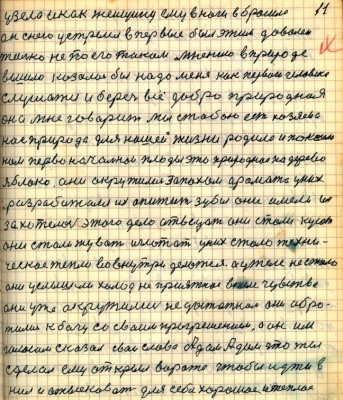 11
увела и как женщину ему в ноги бросила
он с него устрелил впервые был этим доволен
только не по его такому мнению в природе
вышло казалось бы надо меня как первого человека
слушать и беречь всё добро природная
она мне говорит мы с тобою есть хозяева
нас природа для нашей жизни родила и показала
нам первоначальной плоды это природное на дерево
яблоко, они окружили запахом аромат у них
разработался их аппетит зубы они имели их
захотелось этого дело отведать они стали кусать
они стали жувать и глотат у них стало техни-
ческое тепло во внутри делатся а уже не стало
они услышали холод не приятное в теле чувство
они уже окружились недостатком они обра-
тились к богу со своим прозрением, а он им
голосом сказал свои слова Адам Адам это ты
сделал ему открыл ворота чтобы идти в
них и отысковат для себя хорошое и теплое